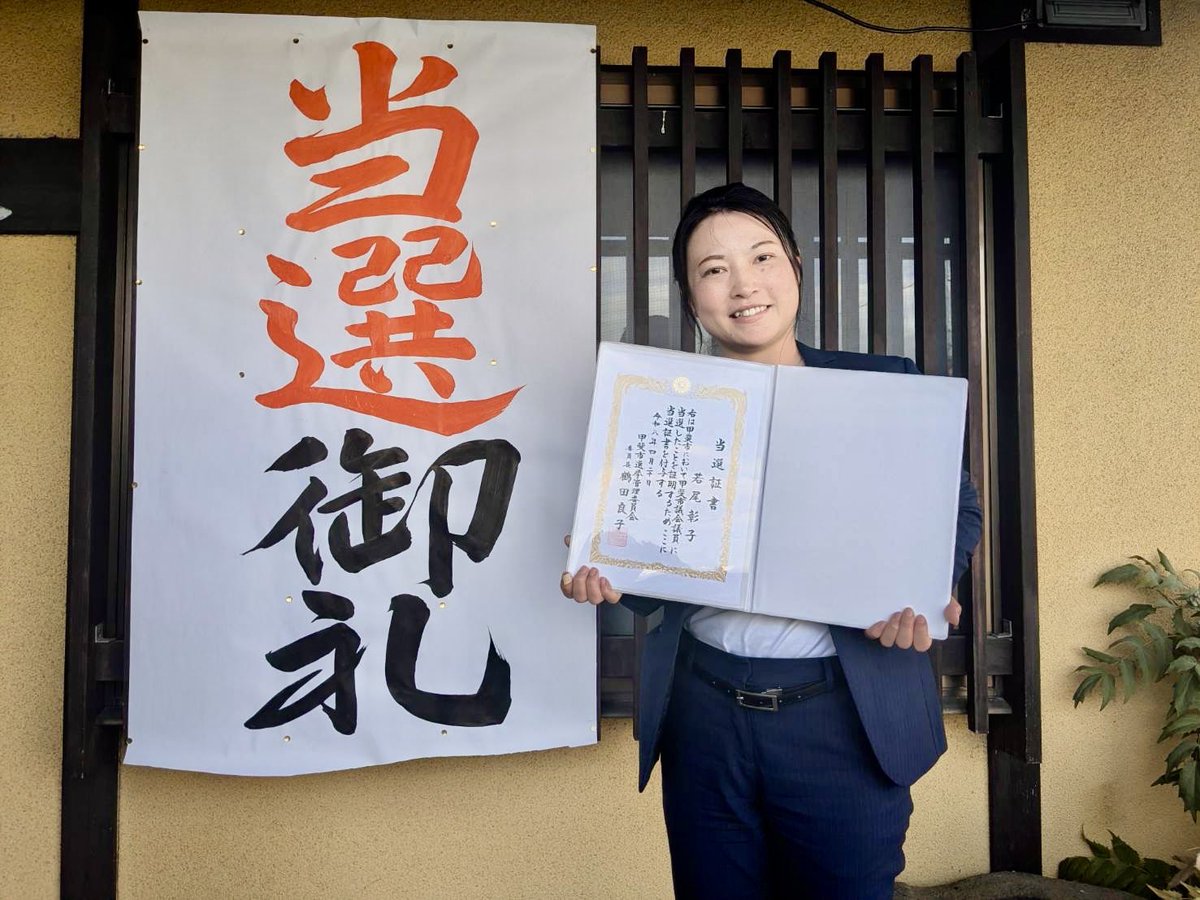 当選御礼
当選証書
若尾彰子
右は甲斐市において甲斐市議会議員に
当選したことを証明するためここに
当選証書を付与する
令和八年四月二十日
甲斐市選挙管理委員会
委員長 鶴田良子